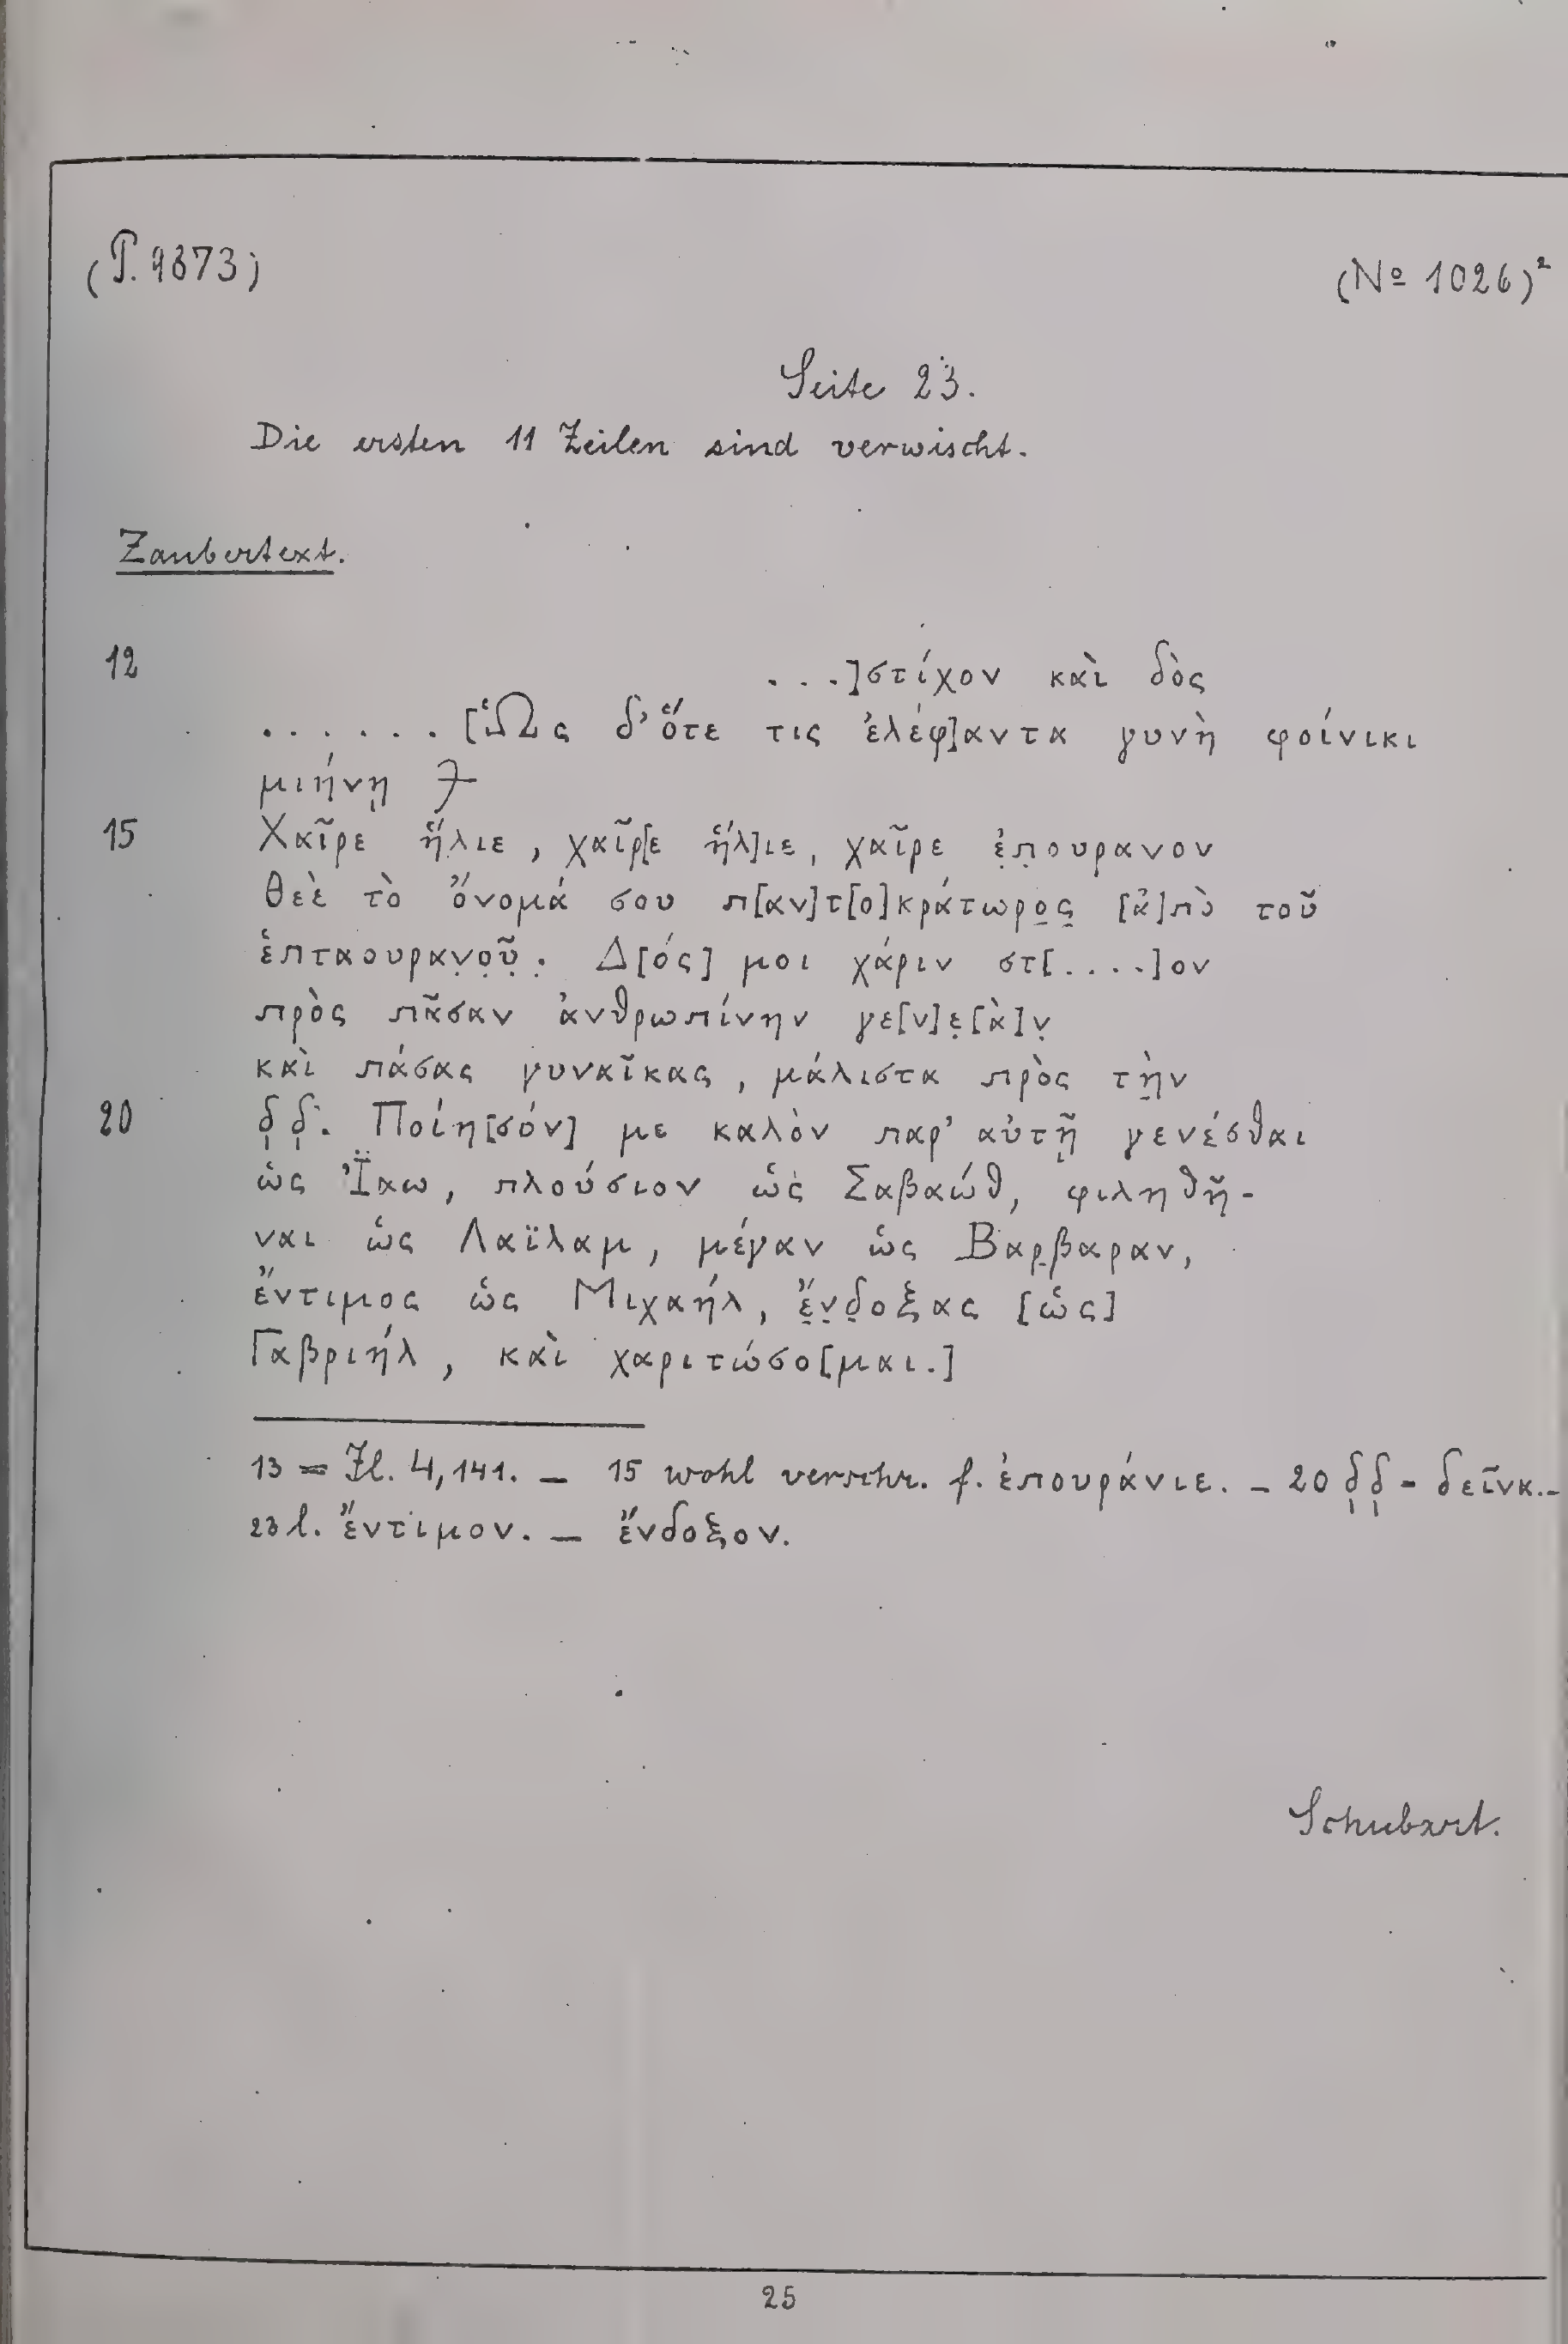 (P. 9873)
(No 1026)²
Seite 23.
Die ersten 11 Zeilen sind verwischt.
Zaubertext.
12 . . .]στίχον καὶ δὸς
. . . . . . [Ὡς δ' ὅτε τις ἐλέφ]αντα γυνὴ φοίνικι
μιήνῃ
15 Χαῖρε ἥλιε, χαῖρ[ε ἥλ]ιε, χαῖρε ἐ̣π̣ουρανον
θεὲ τὸ ὄνομά σου π[αν]τ[ο]κράτωρο̣ς̣ [ἀ]πὸ τοῦ
ἑπταουραν̣ο̣ῦ̣. Δ[ός] μοι χάριν στ[. . . .]ον
πρὸς πᾶσαν ἀνθρωπίνην γε[ν]ε̣[ὰ]ν̣
καὶ πάσας γυναῖκας, μάλιστα πρὸς τὴ̣ν
20 δ δ. Ποίη[σόν] με καλὸν παρ' αὐτῇ γενέσθαι
ὡς Ἴ̈αω, πλούσιον ὡς Σαβαώθ, φιληθῆ-
ναι ὡς Λαϊλαμ, μέγαν ὡς Βαρ̣βαραν,
ἔντιμος ὡς Μιχαήλ, ἔ̣ν̣δ̣οξας [ὡς]
Γαβριήλ, καὶ χαριτώσο[μαι.]
13 = Il. 4,141. — 15 wohl verschr. f. ἐπουράνιε. — 20 δ δ = δεῖνα. —
23 l. ἔντιμον. — ἔνδοξον.
Schubart.
25